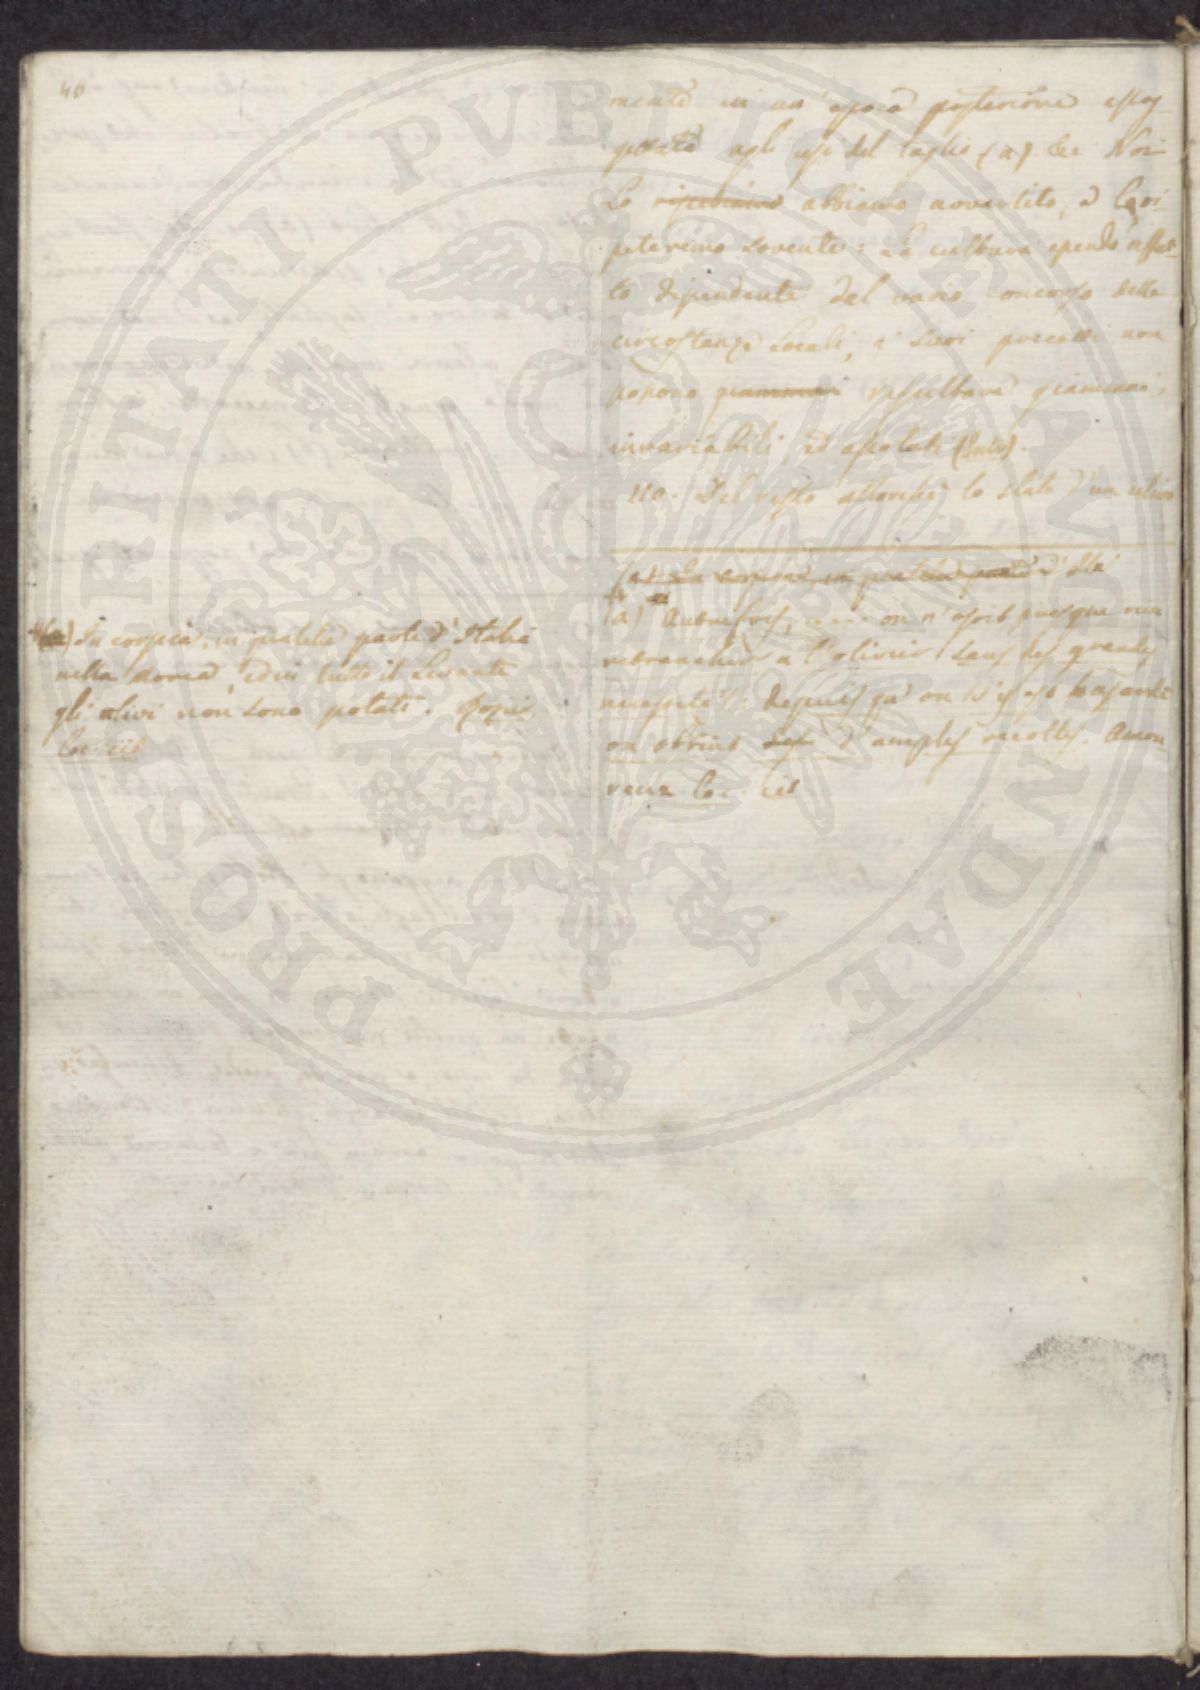 40
mente in un' epoca posteriore assog
gettati agli usi del taglio (a). Noi
lo abbiamo avvertito, e lo ri-
peteremo sovente: La cultura essendo affat-
to dipendente dal vario concorso delle
circostanze locali, i suoi precetti non
possono giammai risultare giammai
invariabili ed assoluti (Intr).
110. Del resto allorchè lo stato d'un ulivo
(a) In corsica, in piccola parte d'Ita
a) Autrefois, .... on n'osoit presque rien
retrancher a l'olivier sans des grandes
necessités: depuis qu' on s'y est hasardé
on obtient d'amples recoltes. Amou
reux loc. cit
(a) In corsica, in parte d'Italia
nella Morea, ed in tutto il Levante
gli ulivi non sono potati.
loc. cit
PROSPERITATI PVBLICAE AVGENDAE